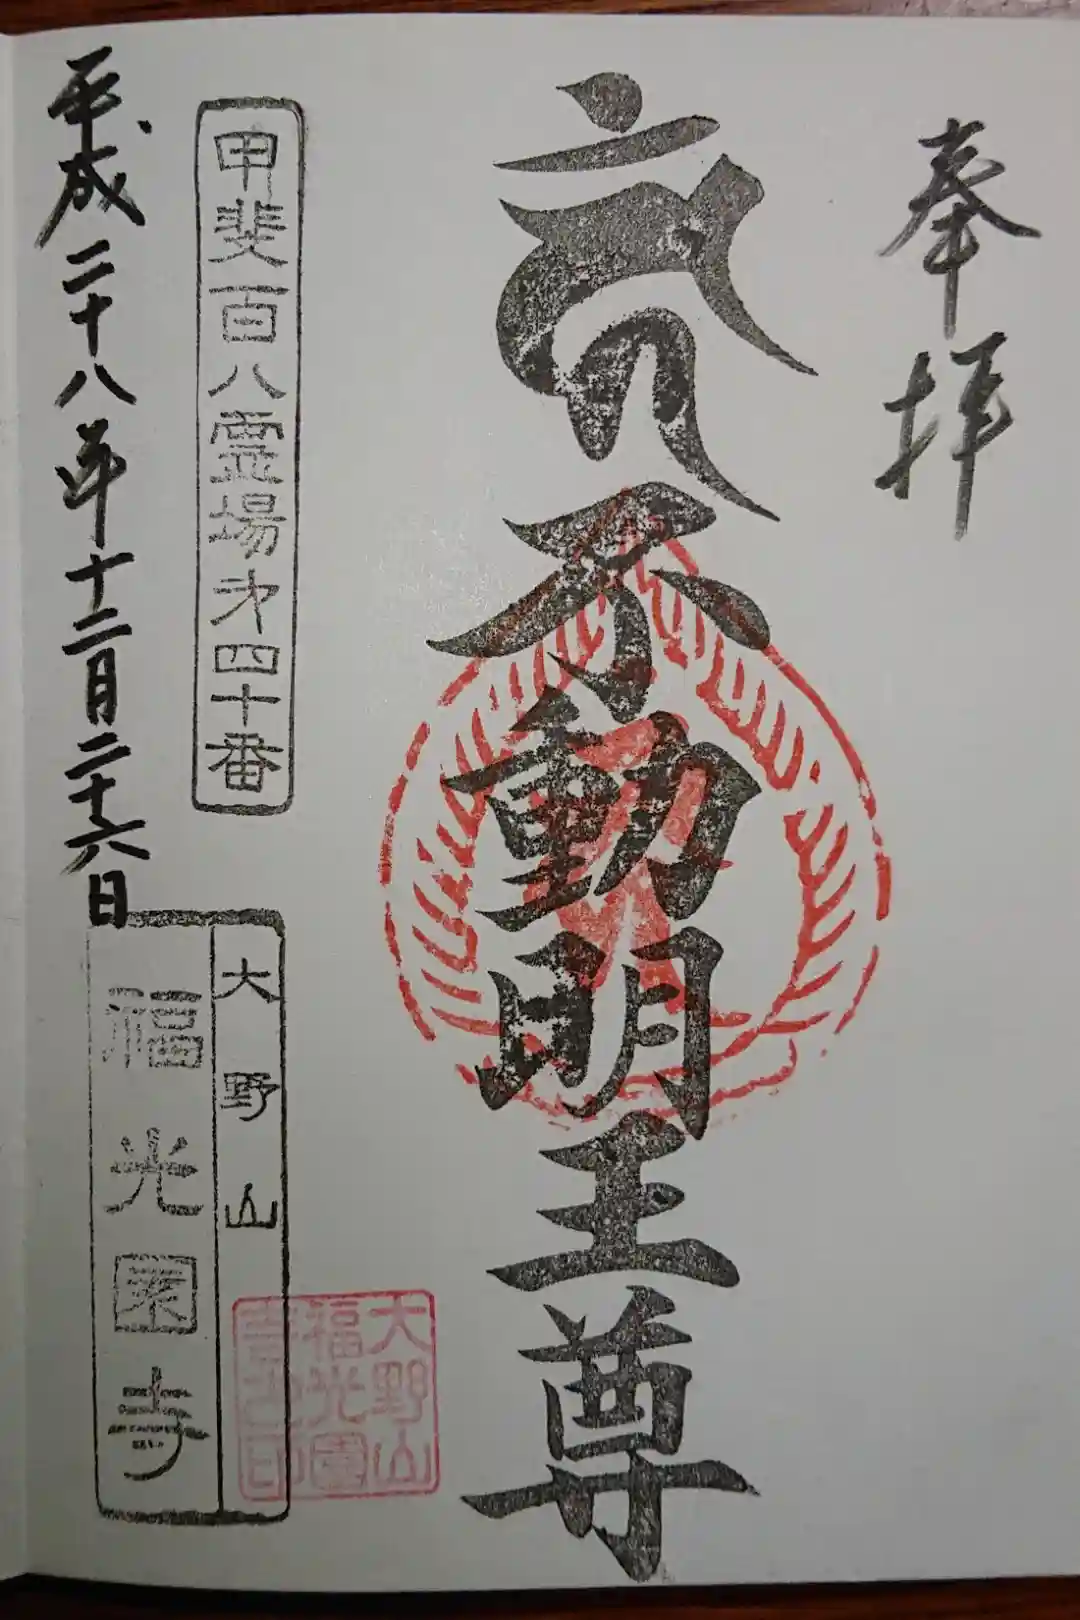 奉拝
不動明王尊
甲斐百八霊場才四十番
平成二十八年十二月二十六日
大野山
福光園寺
大野山
福光園
寺之印